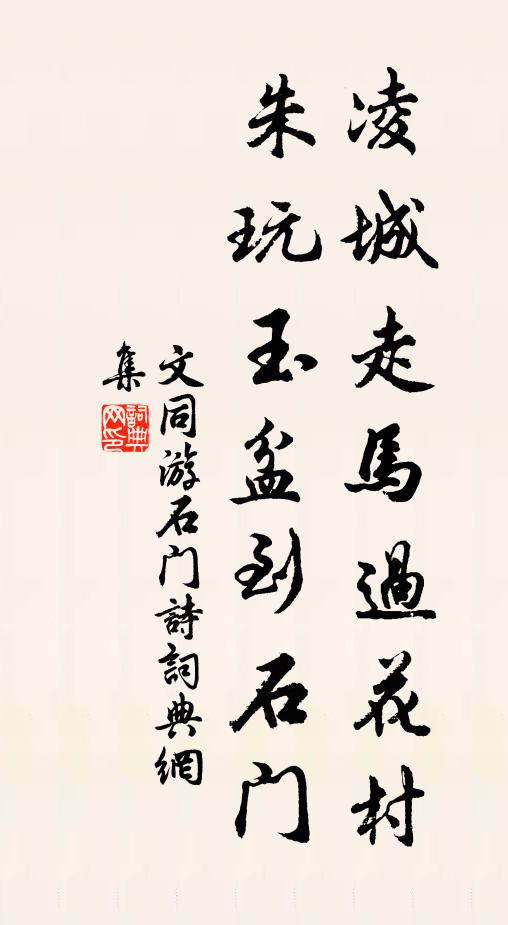 凌城走馬過花村
朱玩玉盆到石门
文同游石门詩詞典網
集
詞典网印